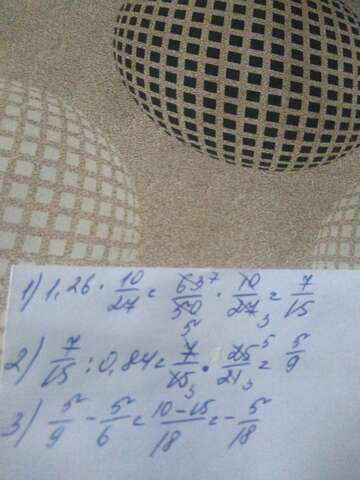 1) 1,26 · 10/27 = 63 7/50 5 · 10/27 3 = 7/15
2) 7/15 : 0,84 = 7/15 3 · 25 5/21 3 = 5/9
3) 5/9 - 5/6 = 10-15/18 = - 5/18